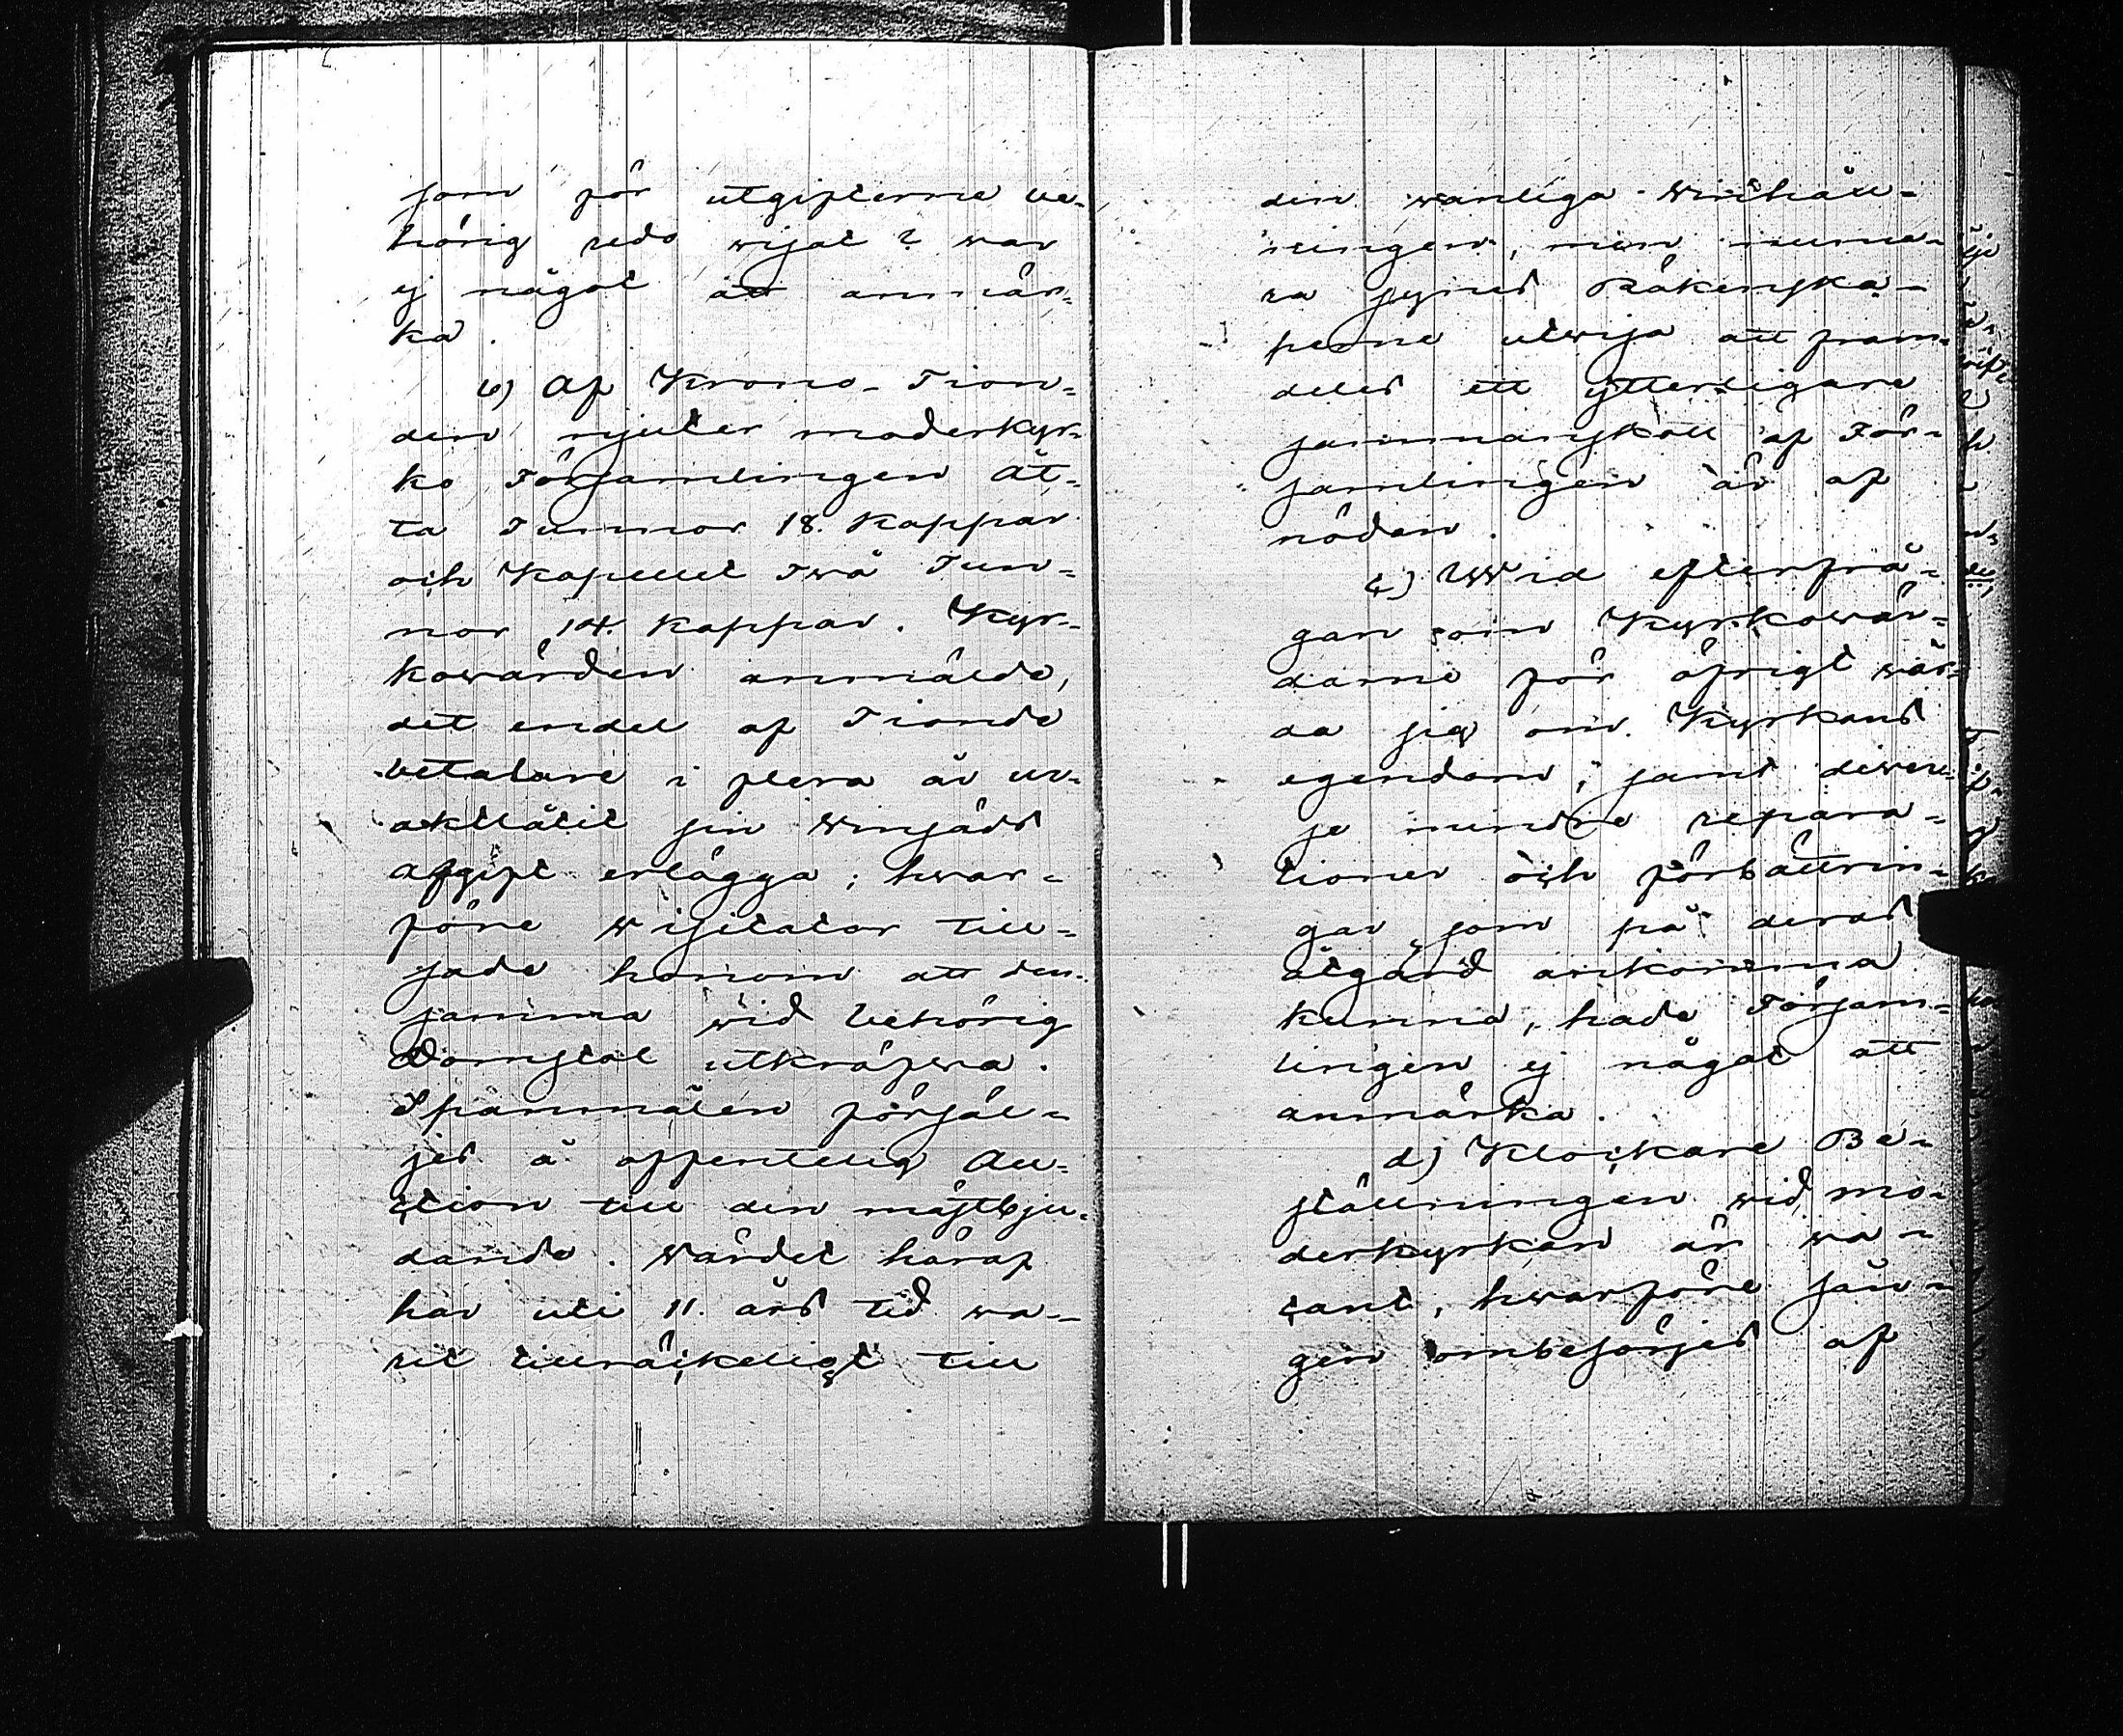 som för utgifterne be-
hörig redo wisat? war
ej något att anmär-
ka.
b) Af Krono-Tion-
den njuter moderkyr-
ko Församlingen Åt-
ta Tunnor 18. kappar
och Kapellet Twå Tun-
nor 14. kappar. Kyr-
kowärden anmälde,
det endel af Tionde
betalare i flera år un-
aktlåtit sin Winsäds
afgift erlägga; hwar-
före Wisitator till-
sade honom att den-
samma wid behörig
Domstol utkräfwa.
Spanmålen försäl-
jes å offentelig Au-
ction till den mästbju-
dande. Wärdet häraf
har uti 11. års tid wa-
rit tillräckeligt till
den wanliga Winhåll-
ningen, men numera-
ra synes Räkenska-
perne utwisa att fram-
deles ett ytterligare
sammanskott af För-
samlingen är af
nöden.
c) Wid efterfrå-
gan om Kyrkowär-
darne för öfrigt wår-
da sig om Kyrkans
egendom, samt diwer-
se mindre repara-
tioner och förbättrin-
gar som på deras
åtgärd ankomma
kunna, hade Försam-
lingen ej något att
anmärka.
d) Klockare Be-
ställningen wid mo-
derkyrkan är wa-
cant, hwarföre sån-
gen ombesörjes af